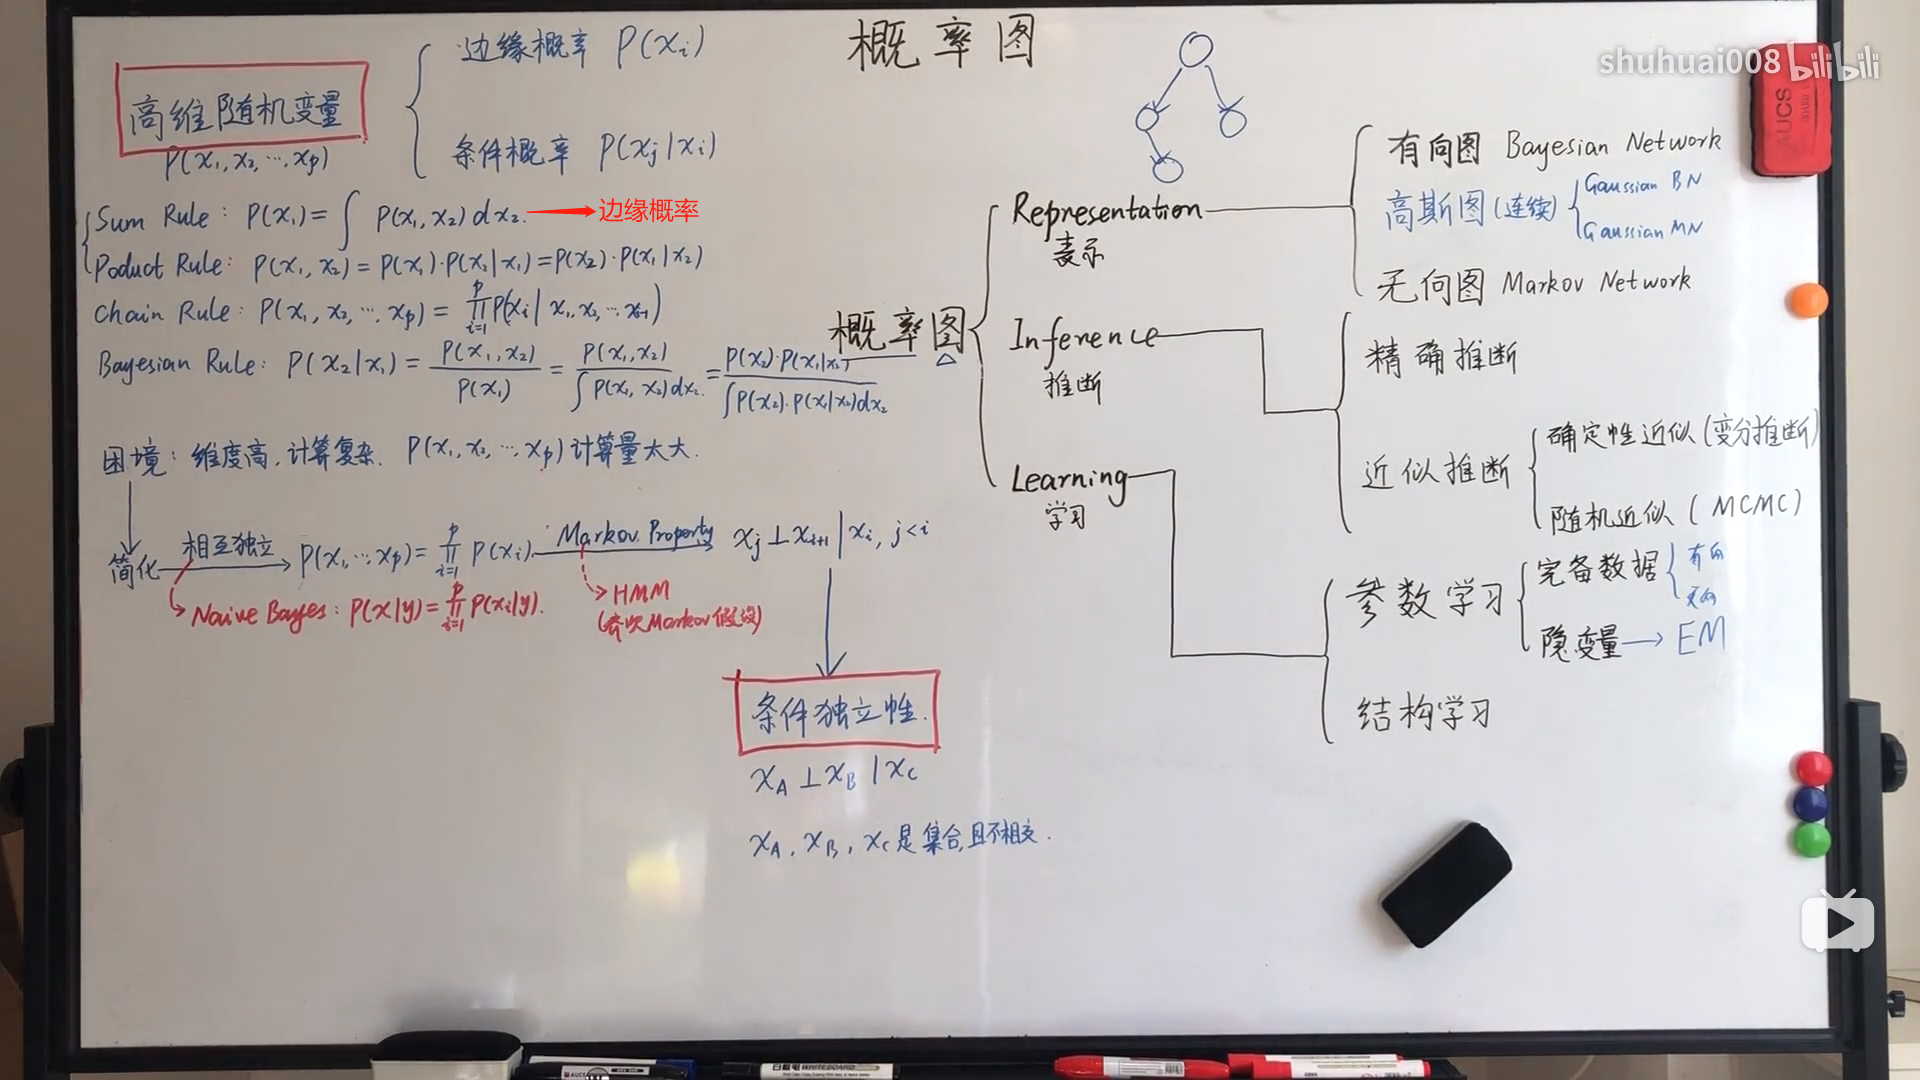 概率图
shuhuai008 bilibili
高维随机变量
P(x₁, x₂, ⋯, xₚ)
边缘概率 P(xᵢ)
条件概率 P(xⱼ|xᵢ)
Sum Rule: P(x₁) = ∫ P(x₁, x₂) dx₂.
边缘概率
Poduct Rule: P(x₁, x₂) = P(x₁)·P(x₂|x₁) = P(x₂)·P(x₁|x₂)
Chain Rule: P(x₁, x₂, ⋯, xₚ) = ∏ᵢ₌₁ᵖ P(xᵢ | x₁, x₂, ⋯ xᵢ₋₁)
Bayesian Rule: P(x₂|x₁) = P(x₁, x₂) / P(x₁) = P(x₁, x₂) / ∫ P(x₁, x₂) dx₂. = P(x₂)·P(x₁|x₂) / ∫ P(x₂)·P(x₁|x₂) dx₂
困境: 维度高, 计算复杂. P(x₁, x₂, ⋯, xₚ) 计算量太大.
简化 相互独立 P(x₁, ⋯, xₚ) = ∏ᵢ₌₁ᵖ P(xᵢ). Markov Property xⱼ ⊥ xᵢ₊₁ | xᵢ, j < i
Naive Bayes: P(x|y) = ∏ᵢ₌₁ᵖ P(xᵢ|y).
HMM
(齐次Markov假设)
条件独立性.
x_A ⊥ x_B | x_C
x_A, x_B, x_C 是集合, 且不相交.
概率图 △
Representation
表示
有向图 Bayesian Network
高斯图 (连续)
Gaussian BN
Gaussian MN
无向图 Markov Network
Inference
推断
精确推断
近似推断
确定性近似 (变分推断)
随机近似 (MCMC)
Learning
学习
参数学习
完备数据
有向
无向
隐变量 → EM
结构学习
AUCS
AUCS
WHITEBOARD